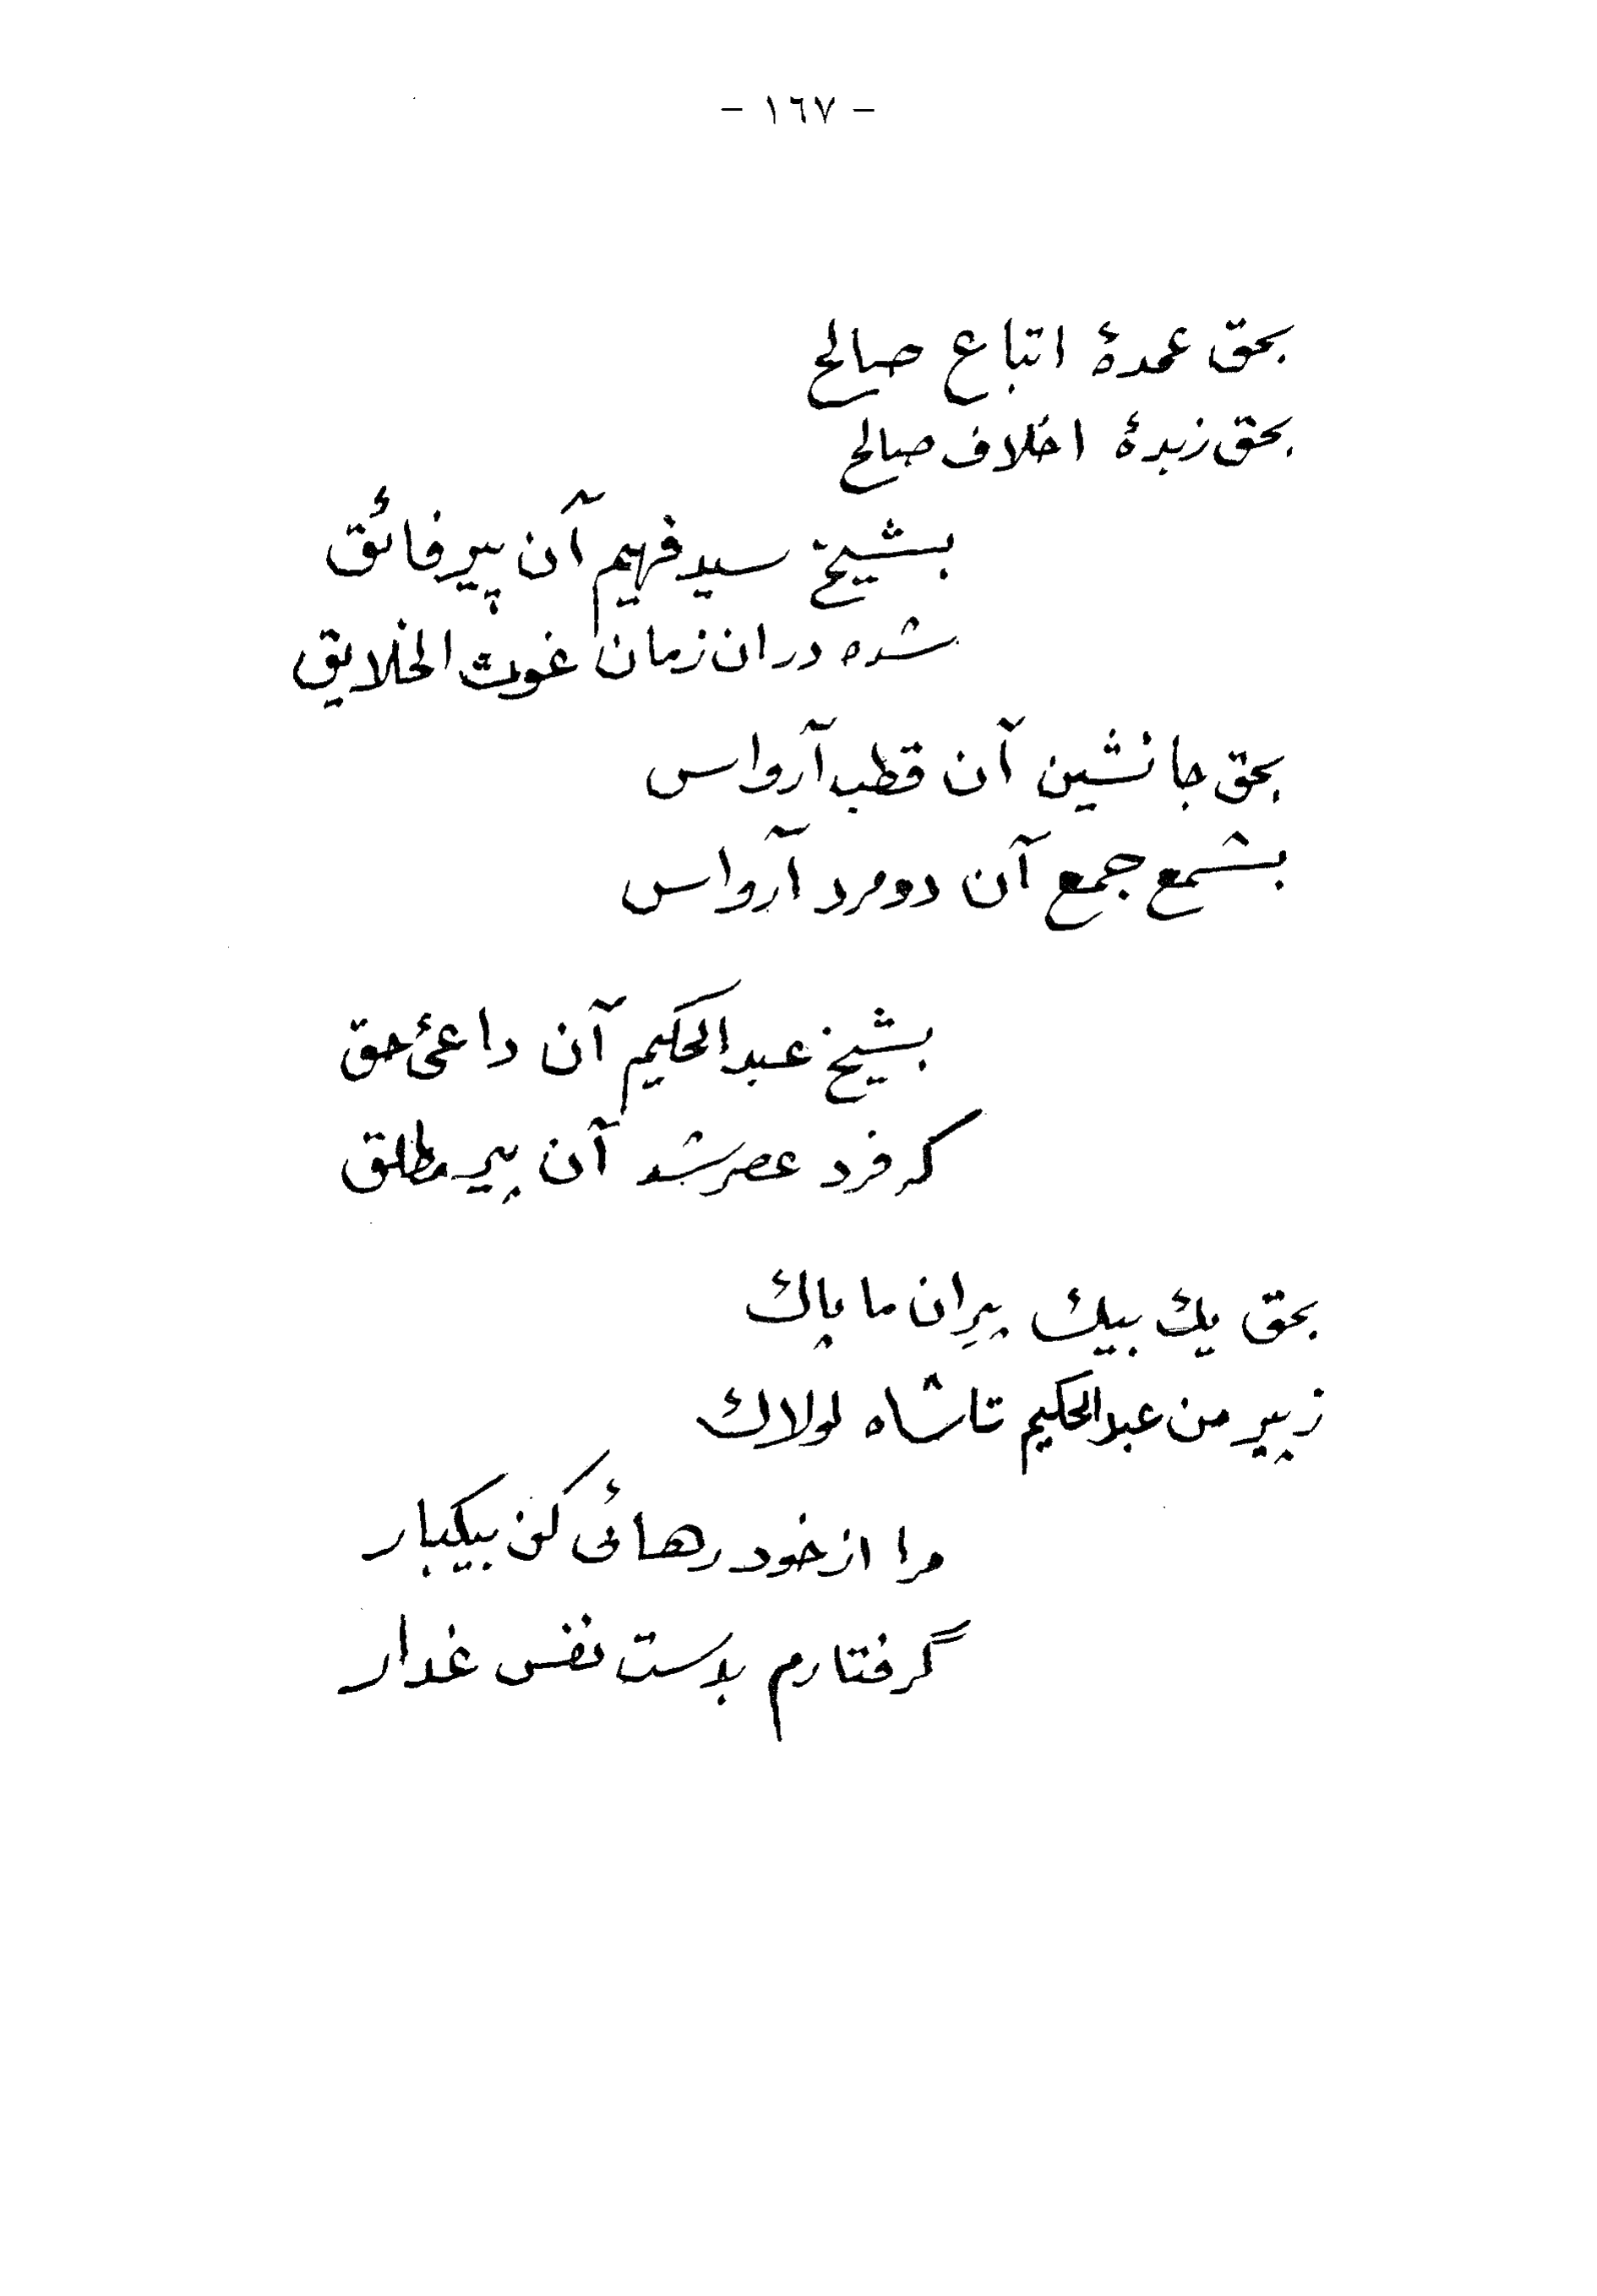 - ١٦٧ -
بحق عمدهٔ اتباع صالح
بحق زبدهٔ اخلاف صالح
بشیخ سید فهیم آن پیر فائق
شده در ان زمان غوث الخلایق
بحق جانشین آن قطب آرواس
بشمع جمع آن دو مرد آرواس
بشیخ عبدالحکیم آن داعیٔ حق
که فرد عصر شد آن پیر مطلق
بحق یك بیك پیرِان ما پاك
ز پیر من عبدالحکیم تا شاه لولاك
مرا از خود رهائی کن بیکبار
گرفتارم بدست نفس غدار